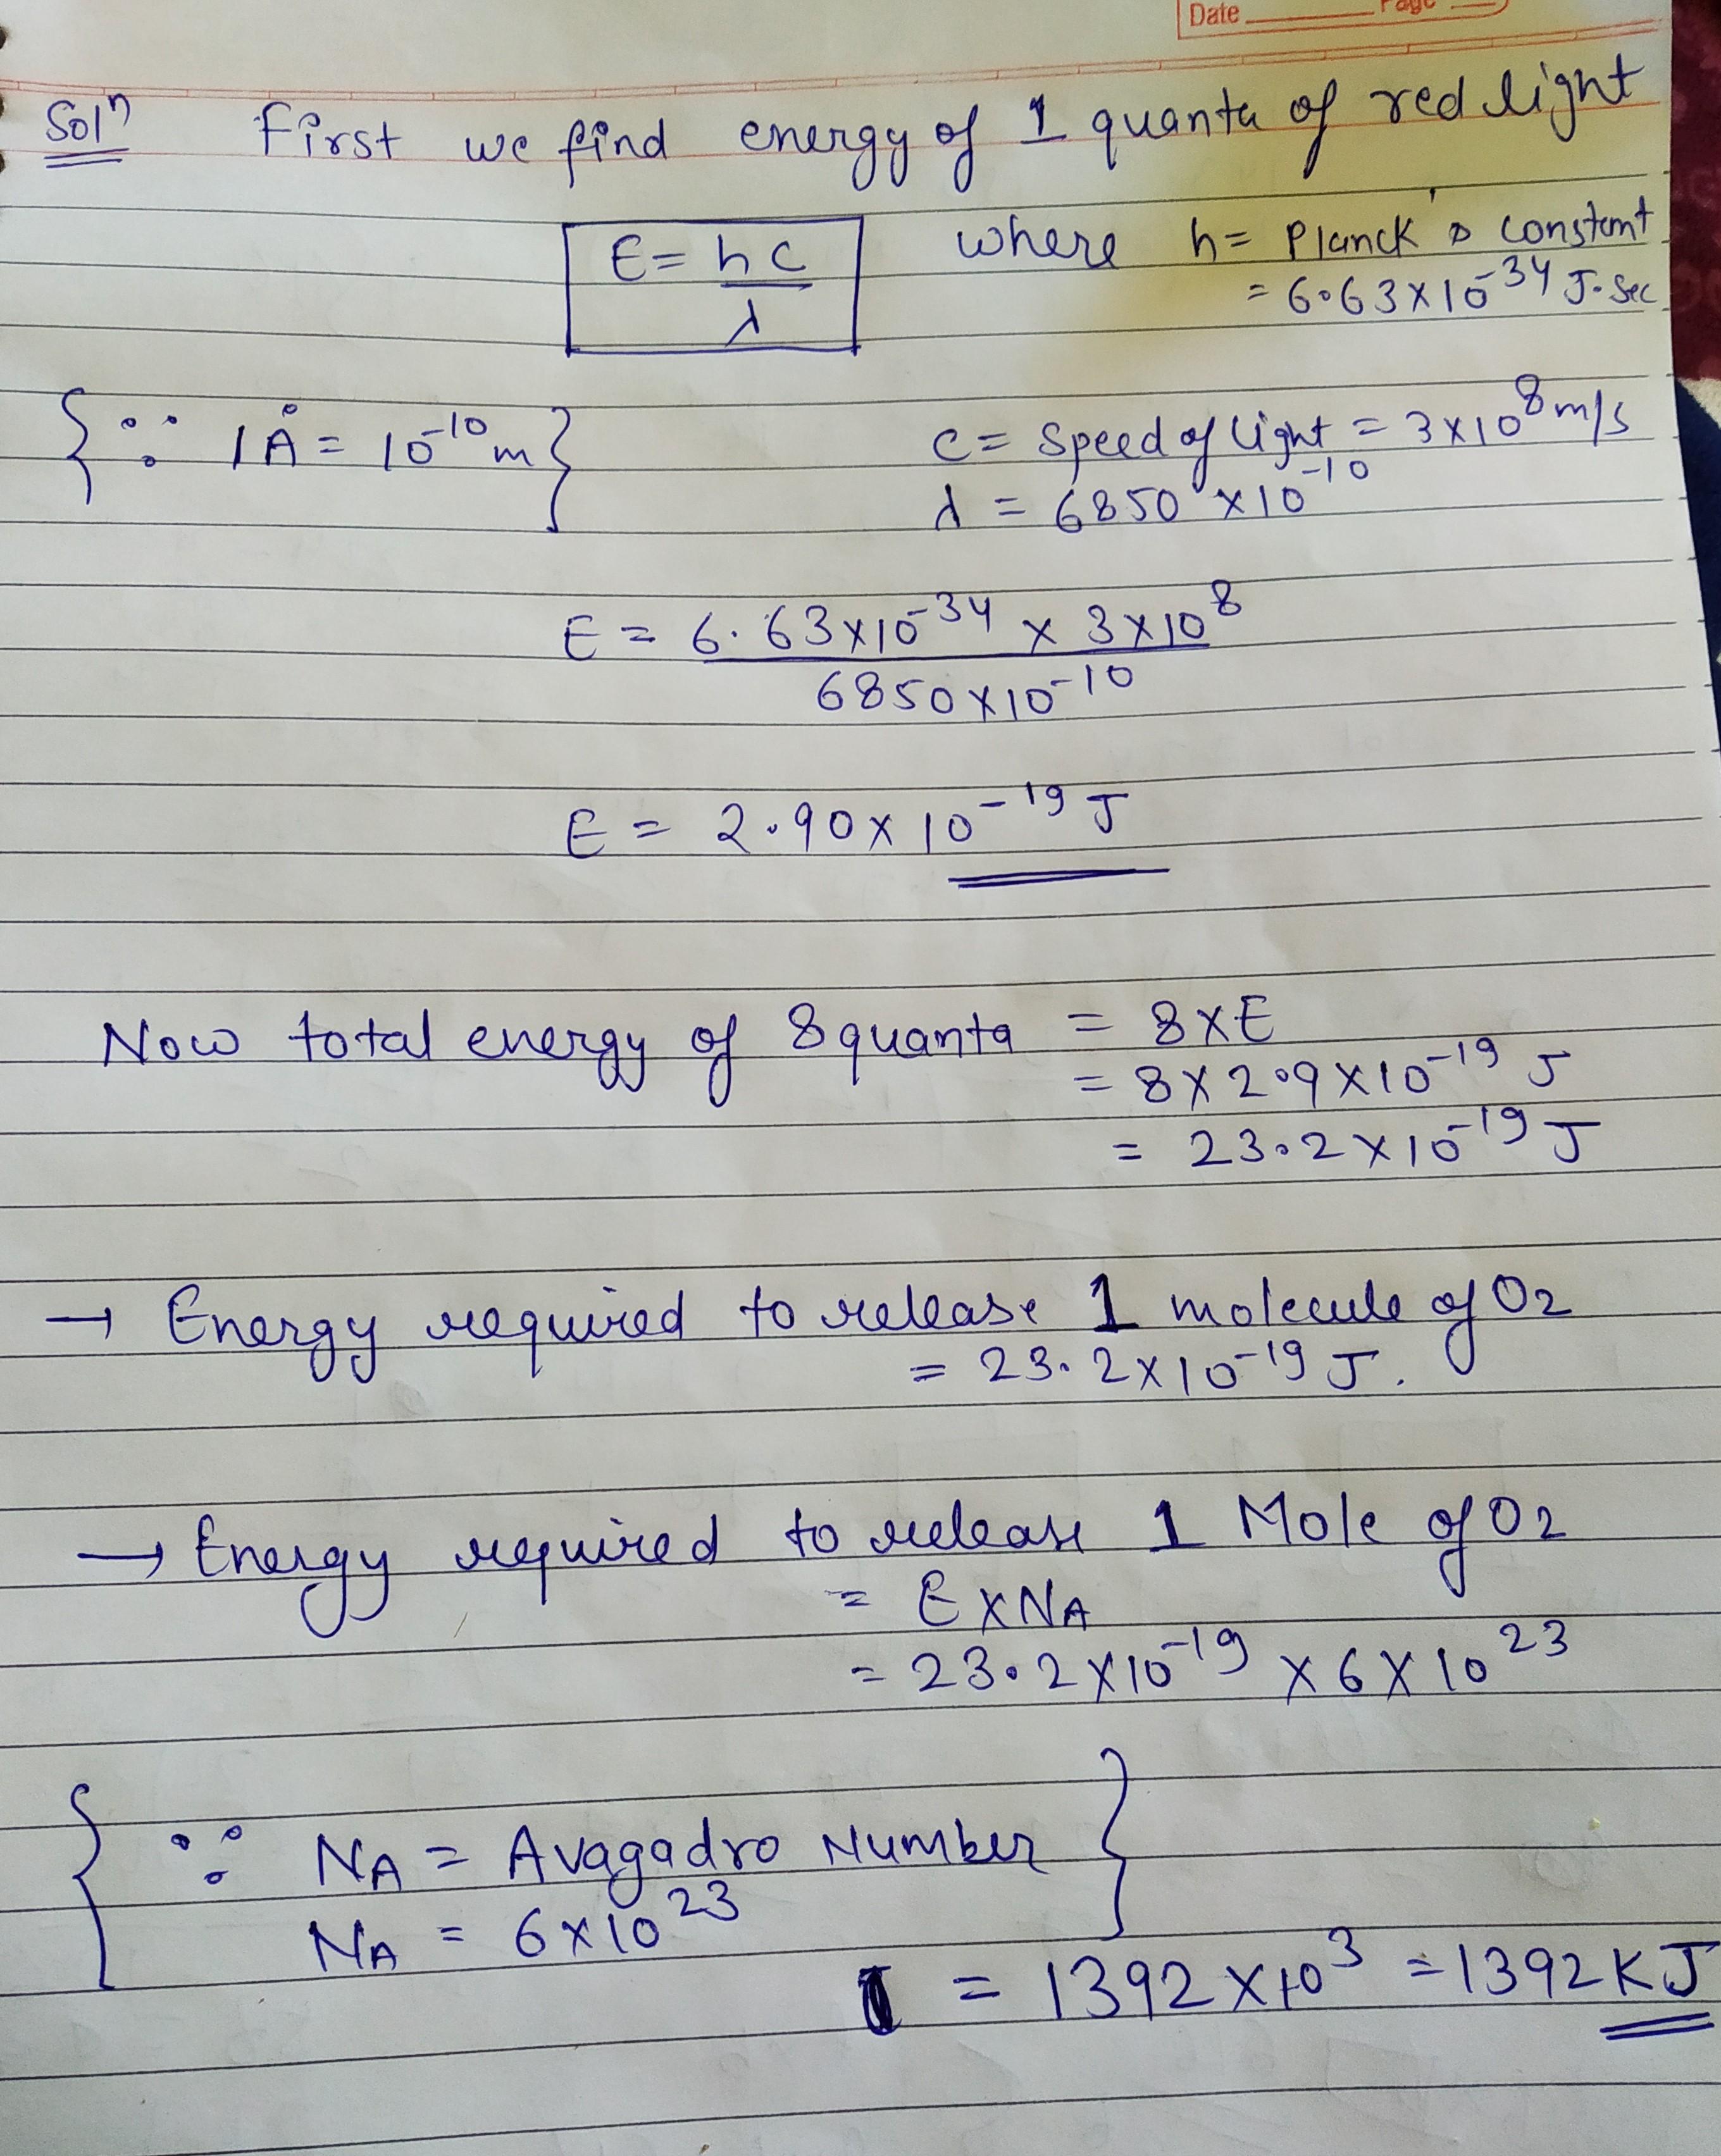 Date Page
Solⁿ First we find energy of 1 quanta of red light
E = hc/λ where h = Planck's constant
= 6.63×10⁻³⁴ J.sec
{∵ 1Å = 10⁻¹⁰ m} c = Speed of light = 3×10⁸ m/s
λ = 6850×10⁻¹⁰
E = 6.63×10⁻³⁴ × 3×10⁸
6850×10⁻¹⁰
E = 2.90×10⁻¹⁹ J
Now total energy of 8 quanta = 8×E
= 8×2.9×10⁻¹⁹ J
= 23.2×10⁻¹⁹ J
→ Energy required to release 1 molecule of O₂
= 23.2×10⁻¹⁹ J.
→ Energy required to release 1 Mole of O₂
= E×NA
= 23.2×10⁻¹⁹ × 6×10²³
{∵ NA = Avagadro Number
NA = 6×10²³}
= 1392×10³ = 1392 KJ